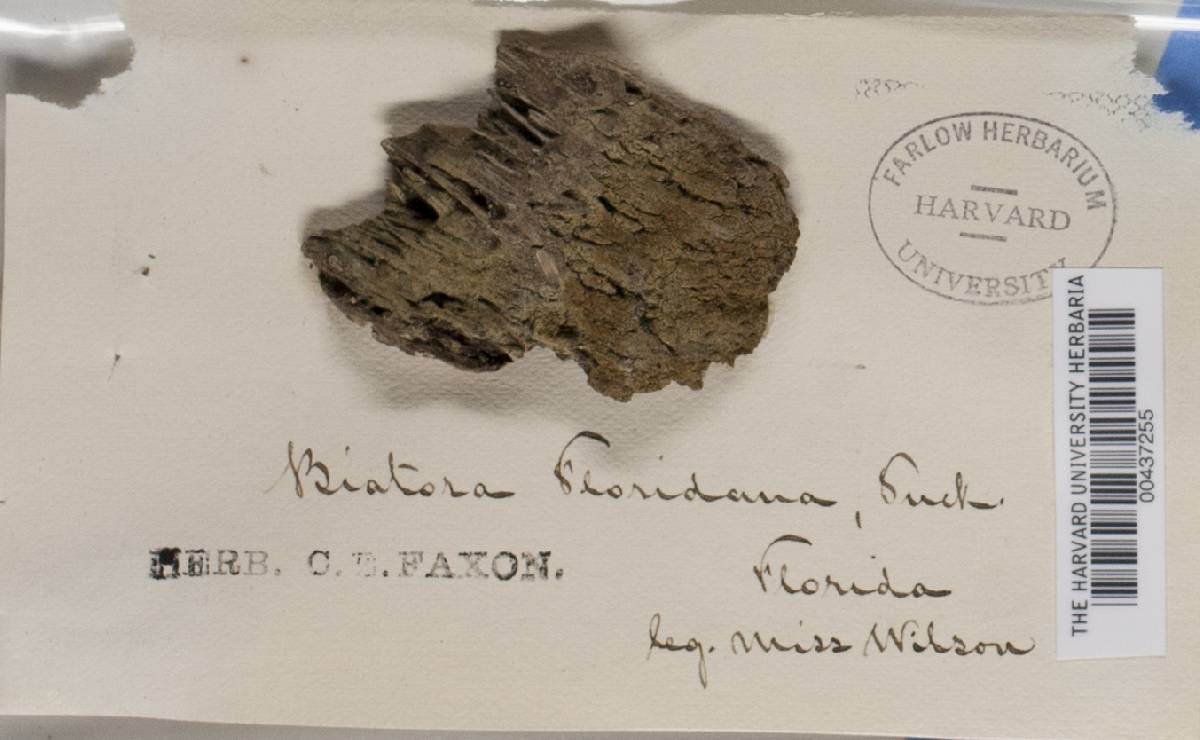 FARLOW HERBARIUM
HARVARD
UNIVERSITY
THE HARVARD UNIVERSITY HERBARIA
00437255
Biatora Floridana, Tuck.
HERB. C. E. FAXON.
Florida
leg. Miss Wilson